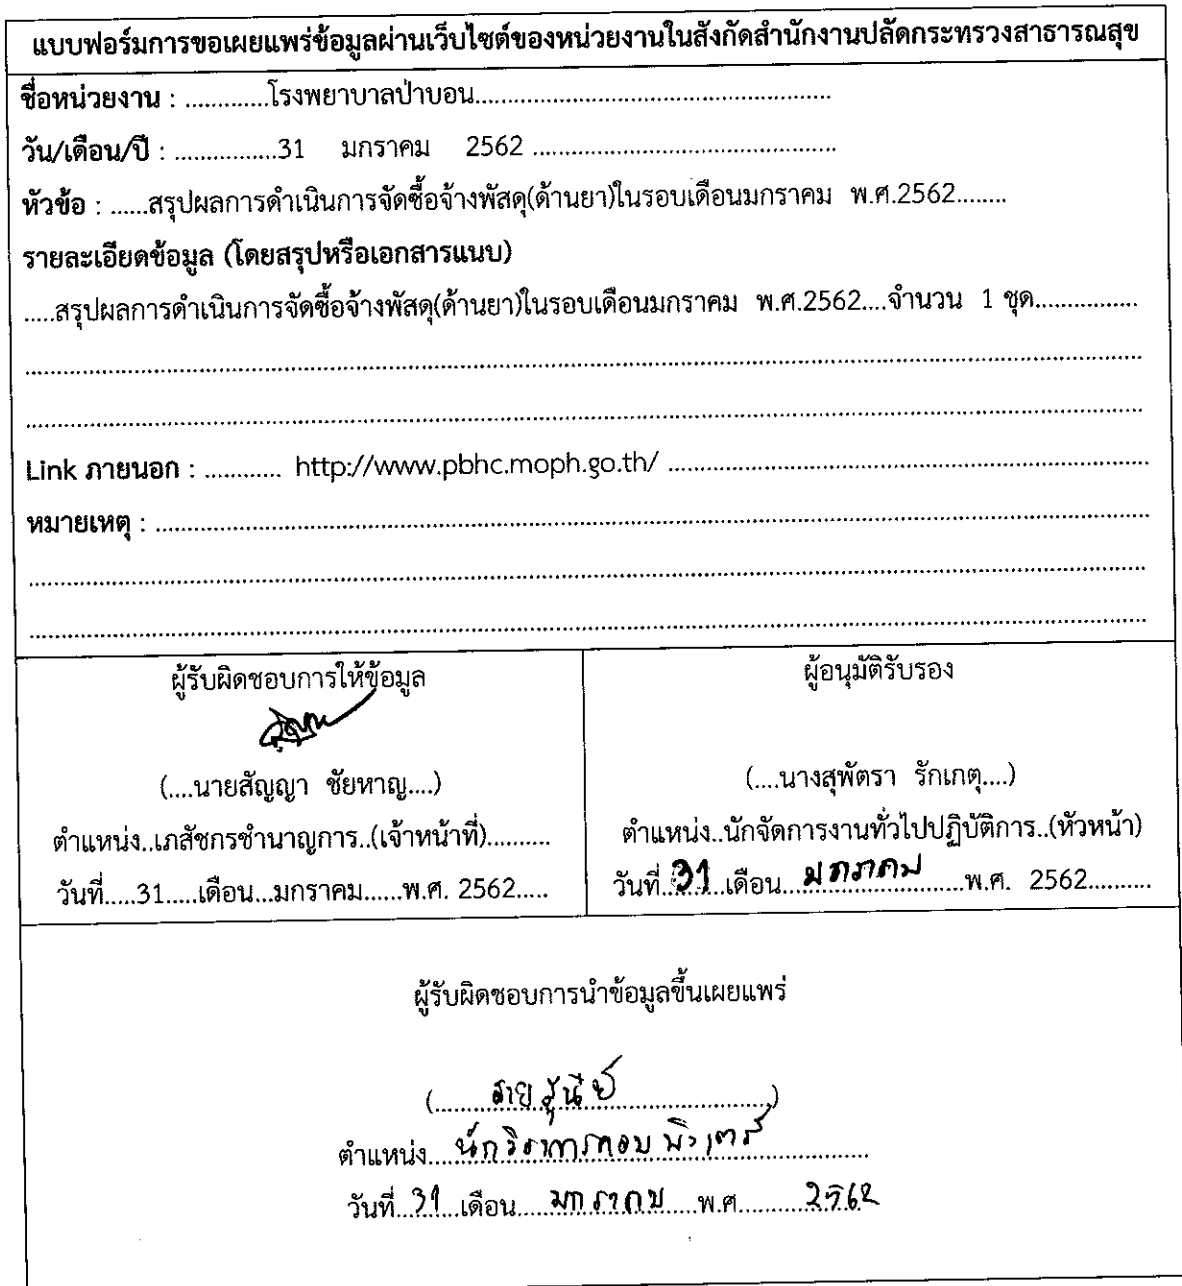 แบบฟอร์มการขอเผยแพร่ข้อมูลผ่านเว็บไซต์ของหน่วยงานในสังกัดสำนักงานปลัดกระทรวงสาธารณสุข
ชื่อหน่วยงาน : .............โรงพยาบาลป่าบอน........................................................
วัน/เดือน/ปี : ................31 มกราคม 2562 ................................................
หัวข้อ : ......สรุปผลการดำเนินการจัดซื้อจ้างพัสดุ(ด้านยา)ในรอบเดือนมกราคม พ.ศ.2562........
รายละเอียดข้อมูล (โดยสรุปหรือเอกสารแนบ)
.....สรุปผลการดำเนินการจัดซื้อจ้างพัสดุ(ด้านยา)ในรอบเดือนมกราคม พ.ศ.2562....จำนวน 1 ชุด................
Link ภายนอก : ............ http://www.pbhc.moph.go.th/ ............................................................
หมายเหตุ : ............................................................
ผู้รับผิดชอบการให้ข้อมูล
(....นายสัญญา ชัยหาญ....)
ตำแหน่ง..เภสัชกรชำนาญการ..(เจ้าหน้าที่)..........
วันที่.....31.....เดือน...มกราคม......พ.ศ. 2562.....
ผู้อนุมัติรับรอง
(....นางสุพัตรา รักเกตุ....)
ตำแหน่ง..นักจัดการงานทั่วไปปฏิบัติการ..(หัวหน้า)
วันที่..31...เดือน...มกราคม......พ.ศ. 2562..........
ผู้รับผิดชอบการนำข้อมูลขึ้นเผยแพร่
ตำแหน่ง...นักวิชาการคอมพิวเตอร์
วันที่...31....เดือน.....มกราคม.....พ.ศ.........2562